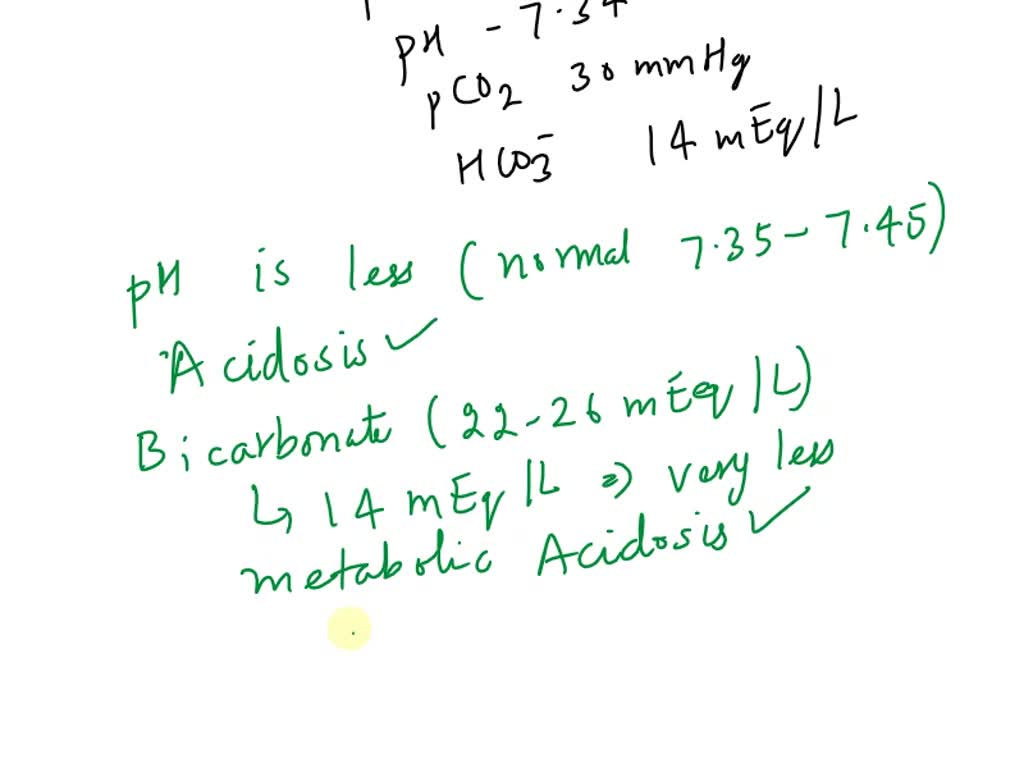 pH - 7.34
pCO2 30 mmHg
HCO3- 14 mEq/L
pH is less (normal 7.35-7.45)
Acidosis ✓
Bicarbonate (22-26 mEq/L)
↳ 14 mEq/L ⇒ very less
metabolic Acidosis ✓